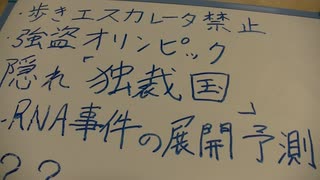 ・歩きエスカレータ禁止
・強盗オリンピック
隠れ「独裁国」
・RNA事件の展開予測
??